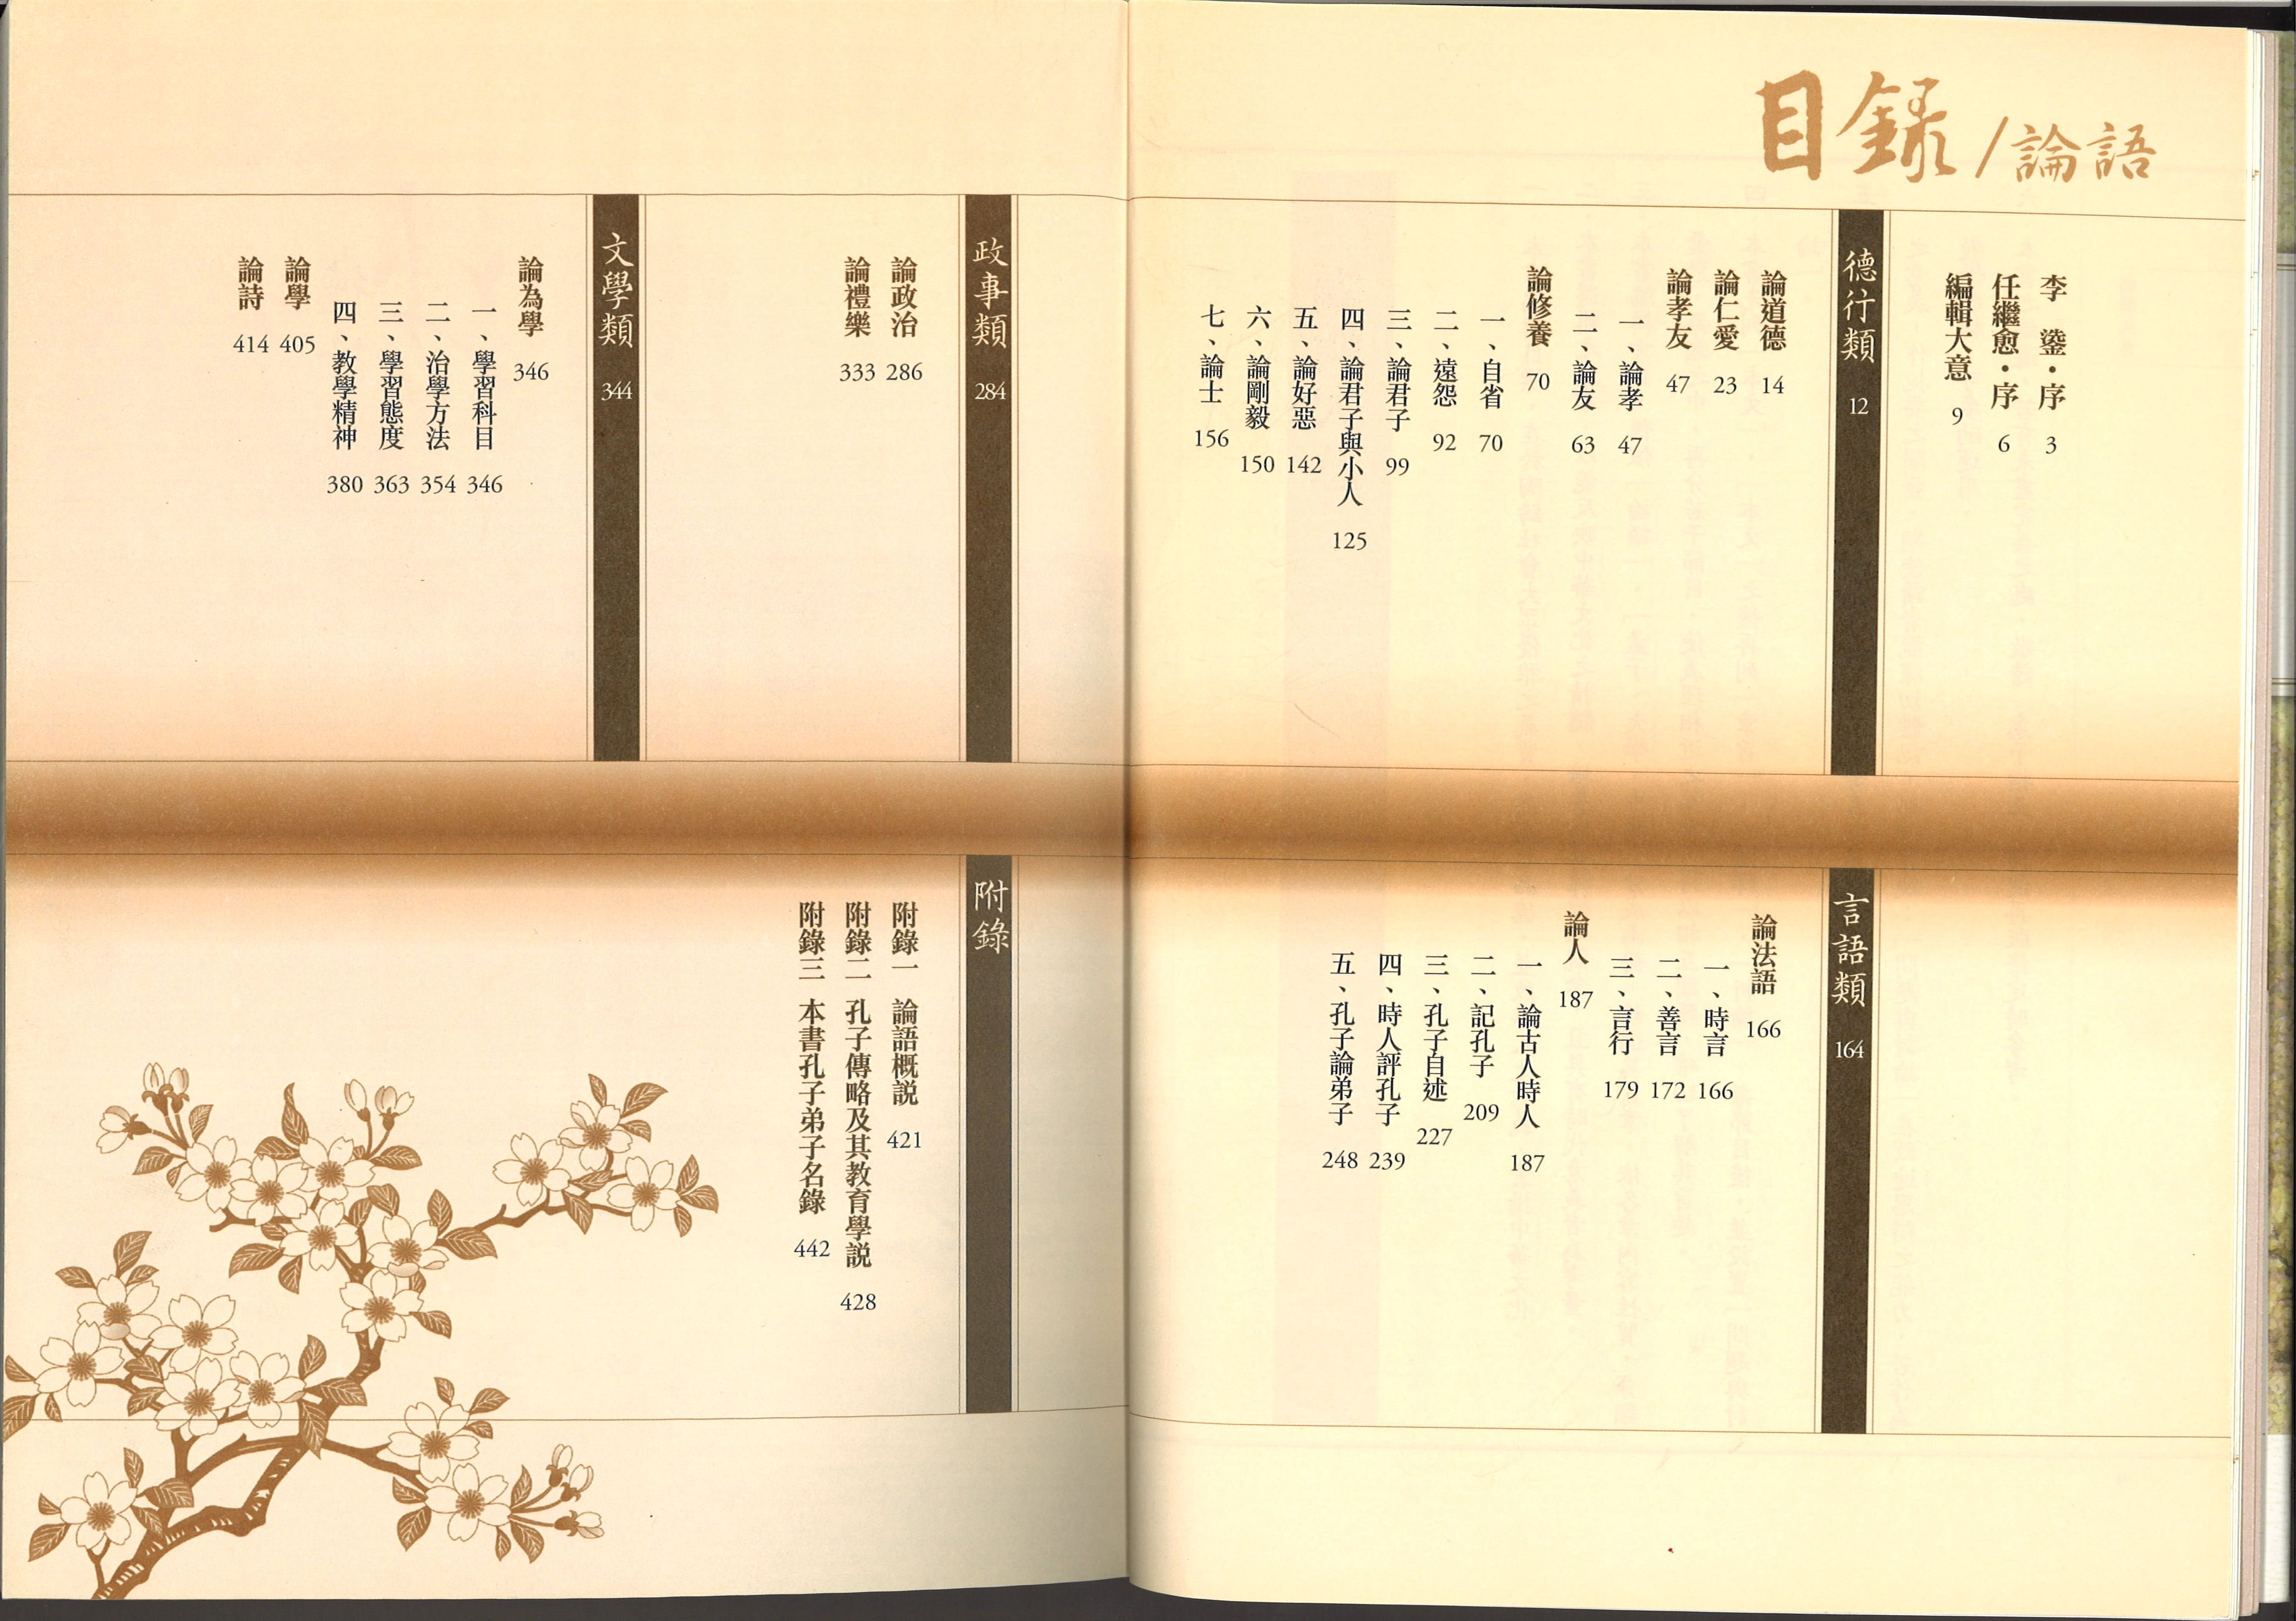 目錄/論語
李鍌・序 3
任繼愈・序 6
編輯大意 9
德行類 12
論道德 14
論仁愛 23
論孝友 47
一、論孝 47
二、論友 63
論修養 70
一、自省 70
二、遠怨 92
三、論君子 99
四、論君子與小人 125
五、論好惡 142
六、論剛毅 150
七、論士 156
言語類 164
論法語 166
一、時言 166
二、善言 172
三、言行 179
論人 187
一、論古人時人 187
二、記孔子 209
三、孔子自述 227
四、時人評孔子 239
五、孔子論弟子 248
政事類 284
論政治 286
論禮樂 333
文學類 344
論為學 346
一、學習科目 346
二、治學方法 354
三、學習態度 363
四、教學精神 380
論學 405
論詩 414
附錄
附錄一 論語概説 421
附錄二 孔子傳略及其教育學説 428
附錄三 本書孔子弟子名錄 442